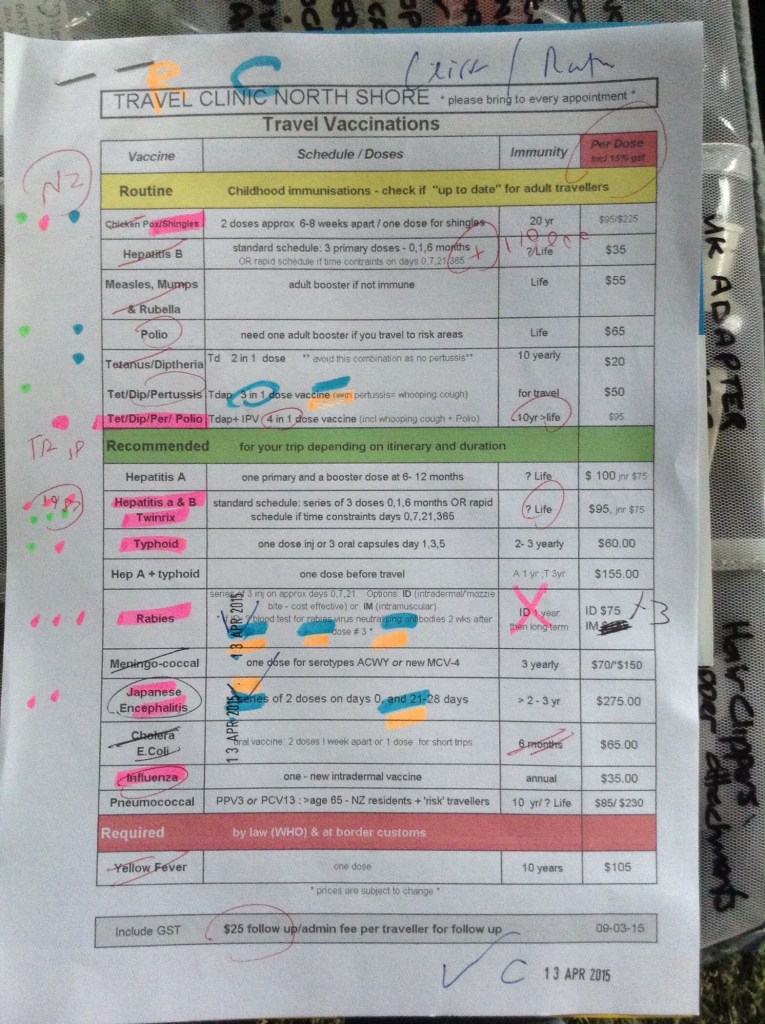 R C
TRAVEL CLINIC NORTH SHORE * please bring to every appointment *
Travel Vaccinations
Vaccine Schedule / Doses Immunity Per Dose
incl 15% gst
NZ
Routine Childhood immunisations - check if "up to date" for adult travellers
Chicken Pox/Shingles 2 doses approx 6-8 weeks apart / one dose for shingles 20 yr $95/$225
Hepatitis B standard schedule: 3 primary doses - 0,1,6 months ?/Life $35
OR rapid schedule if time contraints on days 0,7,21,365 +
Measles, Mumps adult booster if not immune Life $55
& Rubella
Polio need one adult booster if you travel to risk areas Life $65
Tetanus/Diptheria Td 2 in 1 dose ** avoid this combination as no pertussis** 10 yearly $20
Tet/Dip/Pertussis Tdap 3 in 1 dose vaccine (with pertussis= whooping cough) for travel $50
Tet/Dip/Per/ Polio Tdap+ IPV/ 4 in 1 dose vaccine (incl whooping cough + Polio) 10yr >life $95
Recommended for your trip depending on itinerary and duration
Hepatitis A one primary and a booster dose at 6- 12 months ? Life $ 100 jnr $75
Hepatitis a & B standard schedule: series of 3 doses 0,1,6 months OR rapid ? Life $95, jnr $75
Twinrix schedule if time constraints days 0,7,21,365
Typhoid one dose inj or 3 oral capsules day 1,3,5 2- 3 yearly $60.00
Hep A + typhoid one dose before travel A 1 yr ;T 3yr $155.00
series of 3 inj on approx days 0,7,21. Options: ID (intradermal/mozzie
Rabies bite - cost effective) or IM (intramuscular) ID 1 year ID $75 x3
blood test for rabies virus neutralizing antibodies 2 wks after then long term IM
dose # 3 *
13 APR 2015
Meningo-coccal one dose for serotypes ACWY or new MCV-4 3 yearly $70/*$150
Japanese series of 2 doses on days 0, and 21-28 days > 2 - 3 yr $275.00
Encephalitis
13 APR 2015
Cholera oral vaccine: 2 doses 1 week apart or 1 dose for short trips 6 months $65.00
E.Coli
Influenza one - new intradermal vaccine annual $35.00
Pneumococcal PPV3 or PCV13 : >age 65 - NZ residents + 'risk' travellers 10 yr/ ? Life $85/ $230
Required by law (WHO) & at border customs
Yellow Fever one dose 10 years $105
* prices are subject to change *
Include GST $25 follow up/admin fee per traveller for follow up 09-03-15
C 13 APR 2015
UK ADAPTER
Hair clippers